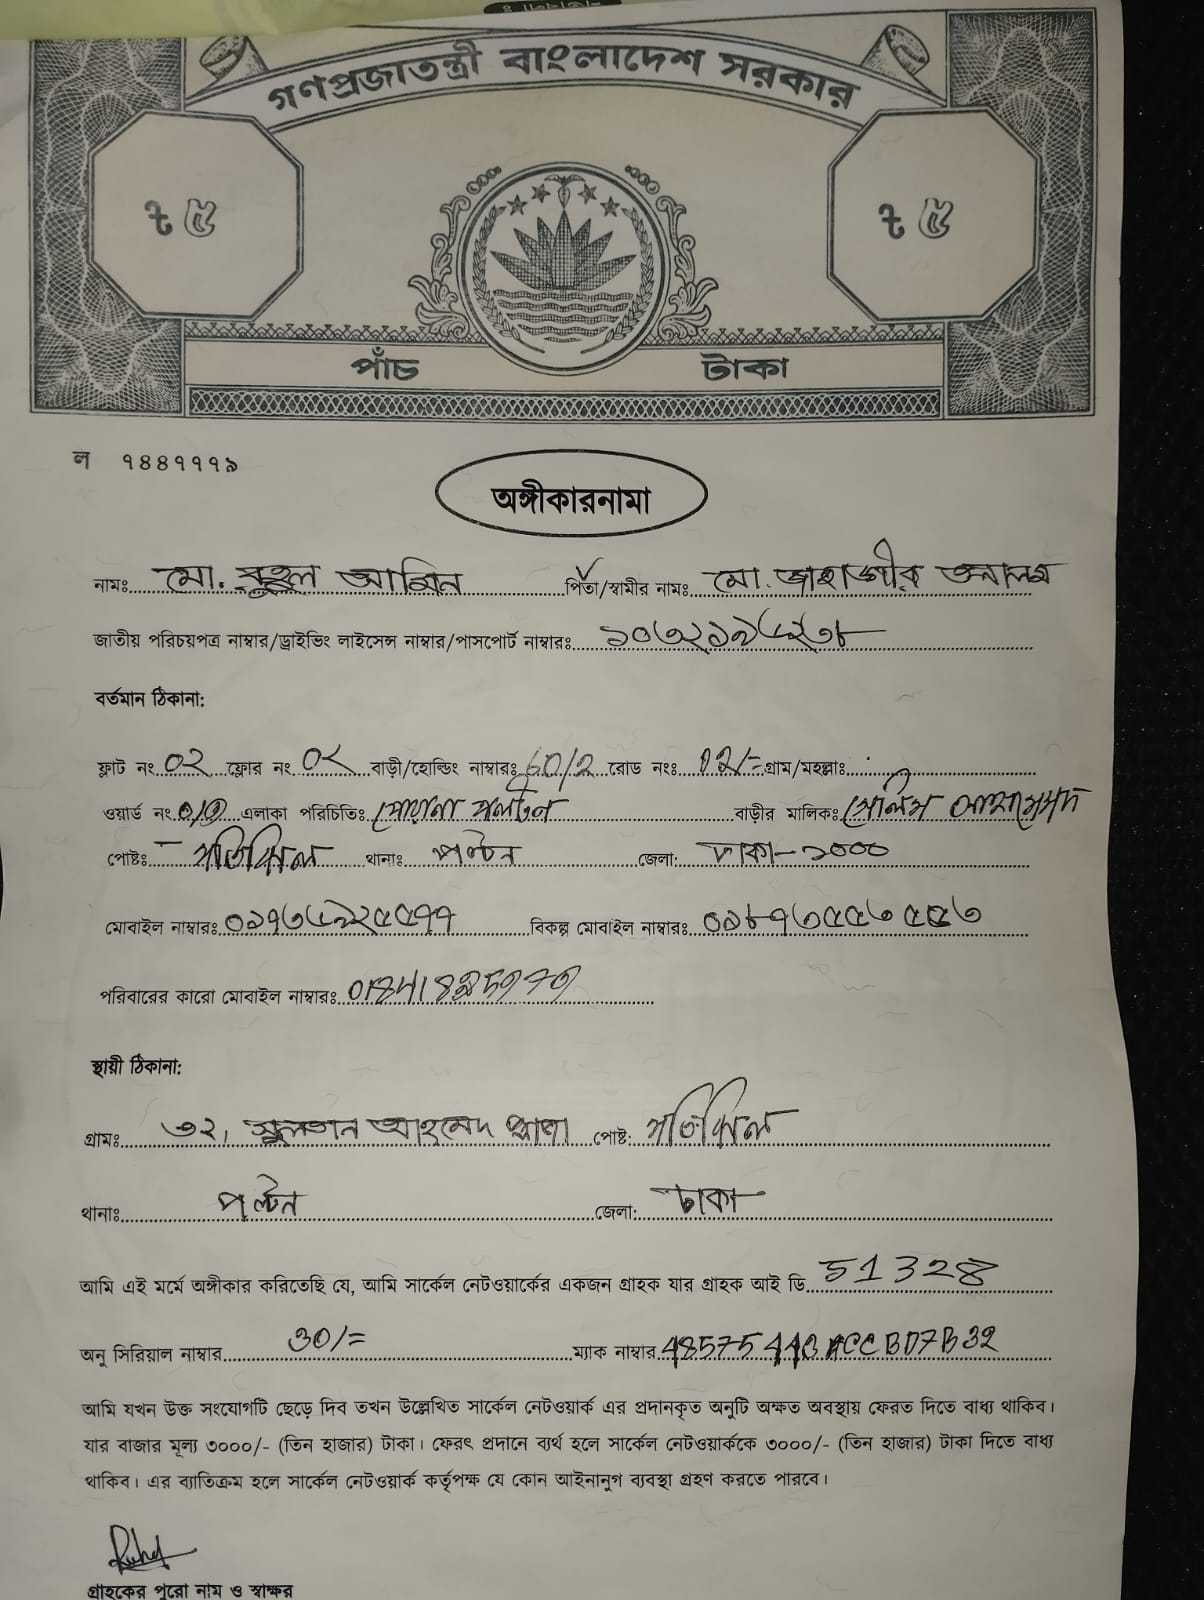 গণপ্রজাতন্ত্রী বাংলাদেশ সরকার
৳ ৫ ৳ ৫
পাঁচ টাকা
ল ৭৪৪৭৭৭৯
অঙ্গীকারনামা
নামঃ মো. রুহুল আমিন পিতা/স্বামীর নামঃ মো. জাহাঙ্গীর আলম
জাতীয় পরিচয়পত্র নাম্বার/ড্রাইভিং লাইসেন্স নাম্বার/পাসপোর্ট নাম্বারঃ
বর্তমান ঠিকানা:
ফ্লাট নং ০২ ফ্লোর নং ০২ বাড়ী/হোল্ডিং নাম্বারঃ 60/2 রোড নংঃ 02/= গ্রাম/মহল্লাঃ
ওয়ার্ড নং এলাকা পরিচিতিঃ পোরানা পল্টন বাড়ীর মালিকঃ সেলিম
পোষ্টঃ মতিঝিল থানাঃ পল্টন জেলা: ঢাকা-১০০০
মোবাইল নাম্বারঃ বিকল্প মোবাইল নাম্বারঃ
পরিবারের কারো মোবাইল নাম্বারঃ
স্থায়ী ঠিকানা:
গ্রামঃ ৩২, সুলতান আহমেদ প্লাজা পোষ্ট: মতিঝিল
থানাঃ পল্টন জেলা: ঢাকা
আমি এই মর্মে অঙ্গীকার করিতেছি যে, আমি সার্কেল নেটওয়ার্কের একজন গ্রাহক যার গ্রাহক আই ডি 51328
অনু সিরিয়াল নাম্বার 30/= ম্যাক নাম্বার
আমি যখন উক্ত সংযোগটি ছেড়ে দিব তখন উল্লেখিত সার্কেল নেটওয়ার্ক এর প্রদানকৃত অনুটি অক্ষত অবস্থায় ফেরত দিতে বাধ্য থাকিব।
যার বাজার মূল্য ৩০০০/- (তিন হাজার) টাকা। ফেরৎ প্রদানে ব্যর্থ হলে সার্কেল নেটওয়ার্ককে ৩০০০/- (তিন হাজার) টাকা দিতে বাধ্য
থাকিব। এর ব্যাতিক্রম হলে সার্কেল নেটওয়ার্ক কর্তৃপক্ষ যে কোন আইনানুগ ব্যবস্থা গ্রহণ করতে পারবে।
Ruhel
গ্রাহকের পুরো নাম ও স্বাক্ষর